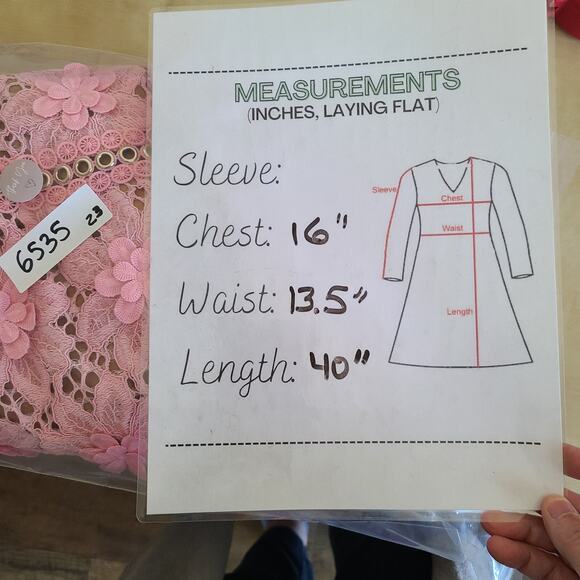 MEASUREMENTS
(INCHES, LAYING FLAT)
Sleeve:
Chest: 16"
Waist: 13.5"
Length: 40"
Sleeve
Chest
Waist
Length
6535
23